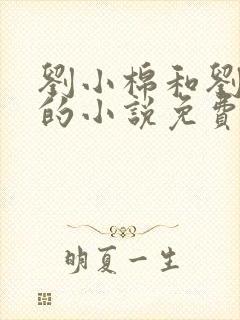 劉小棉和劉
的小說免費
明夏一生